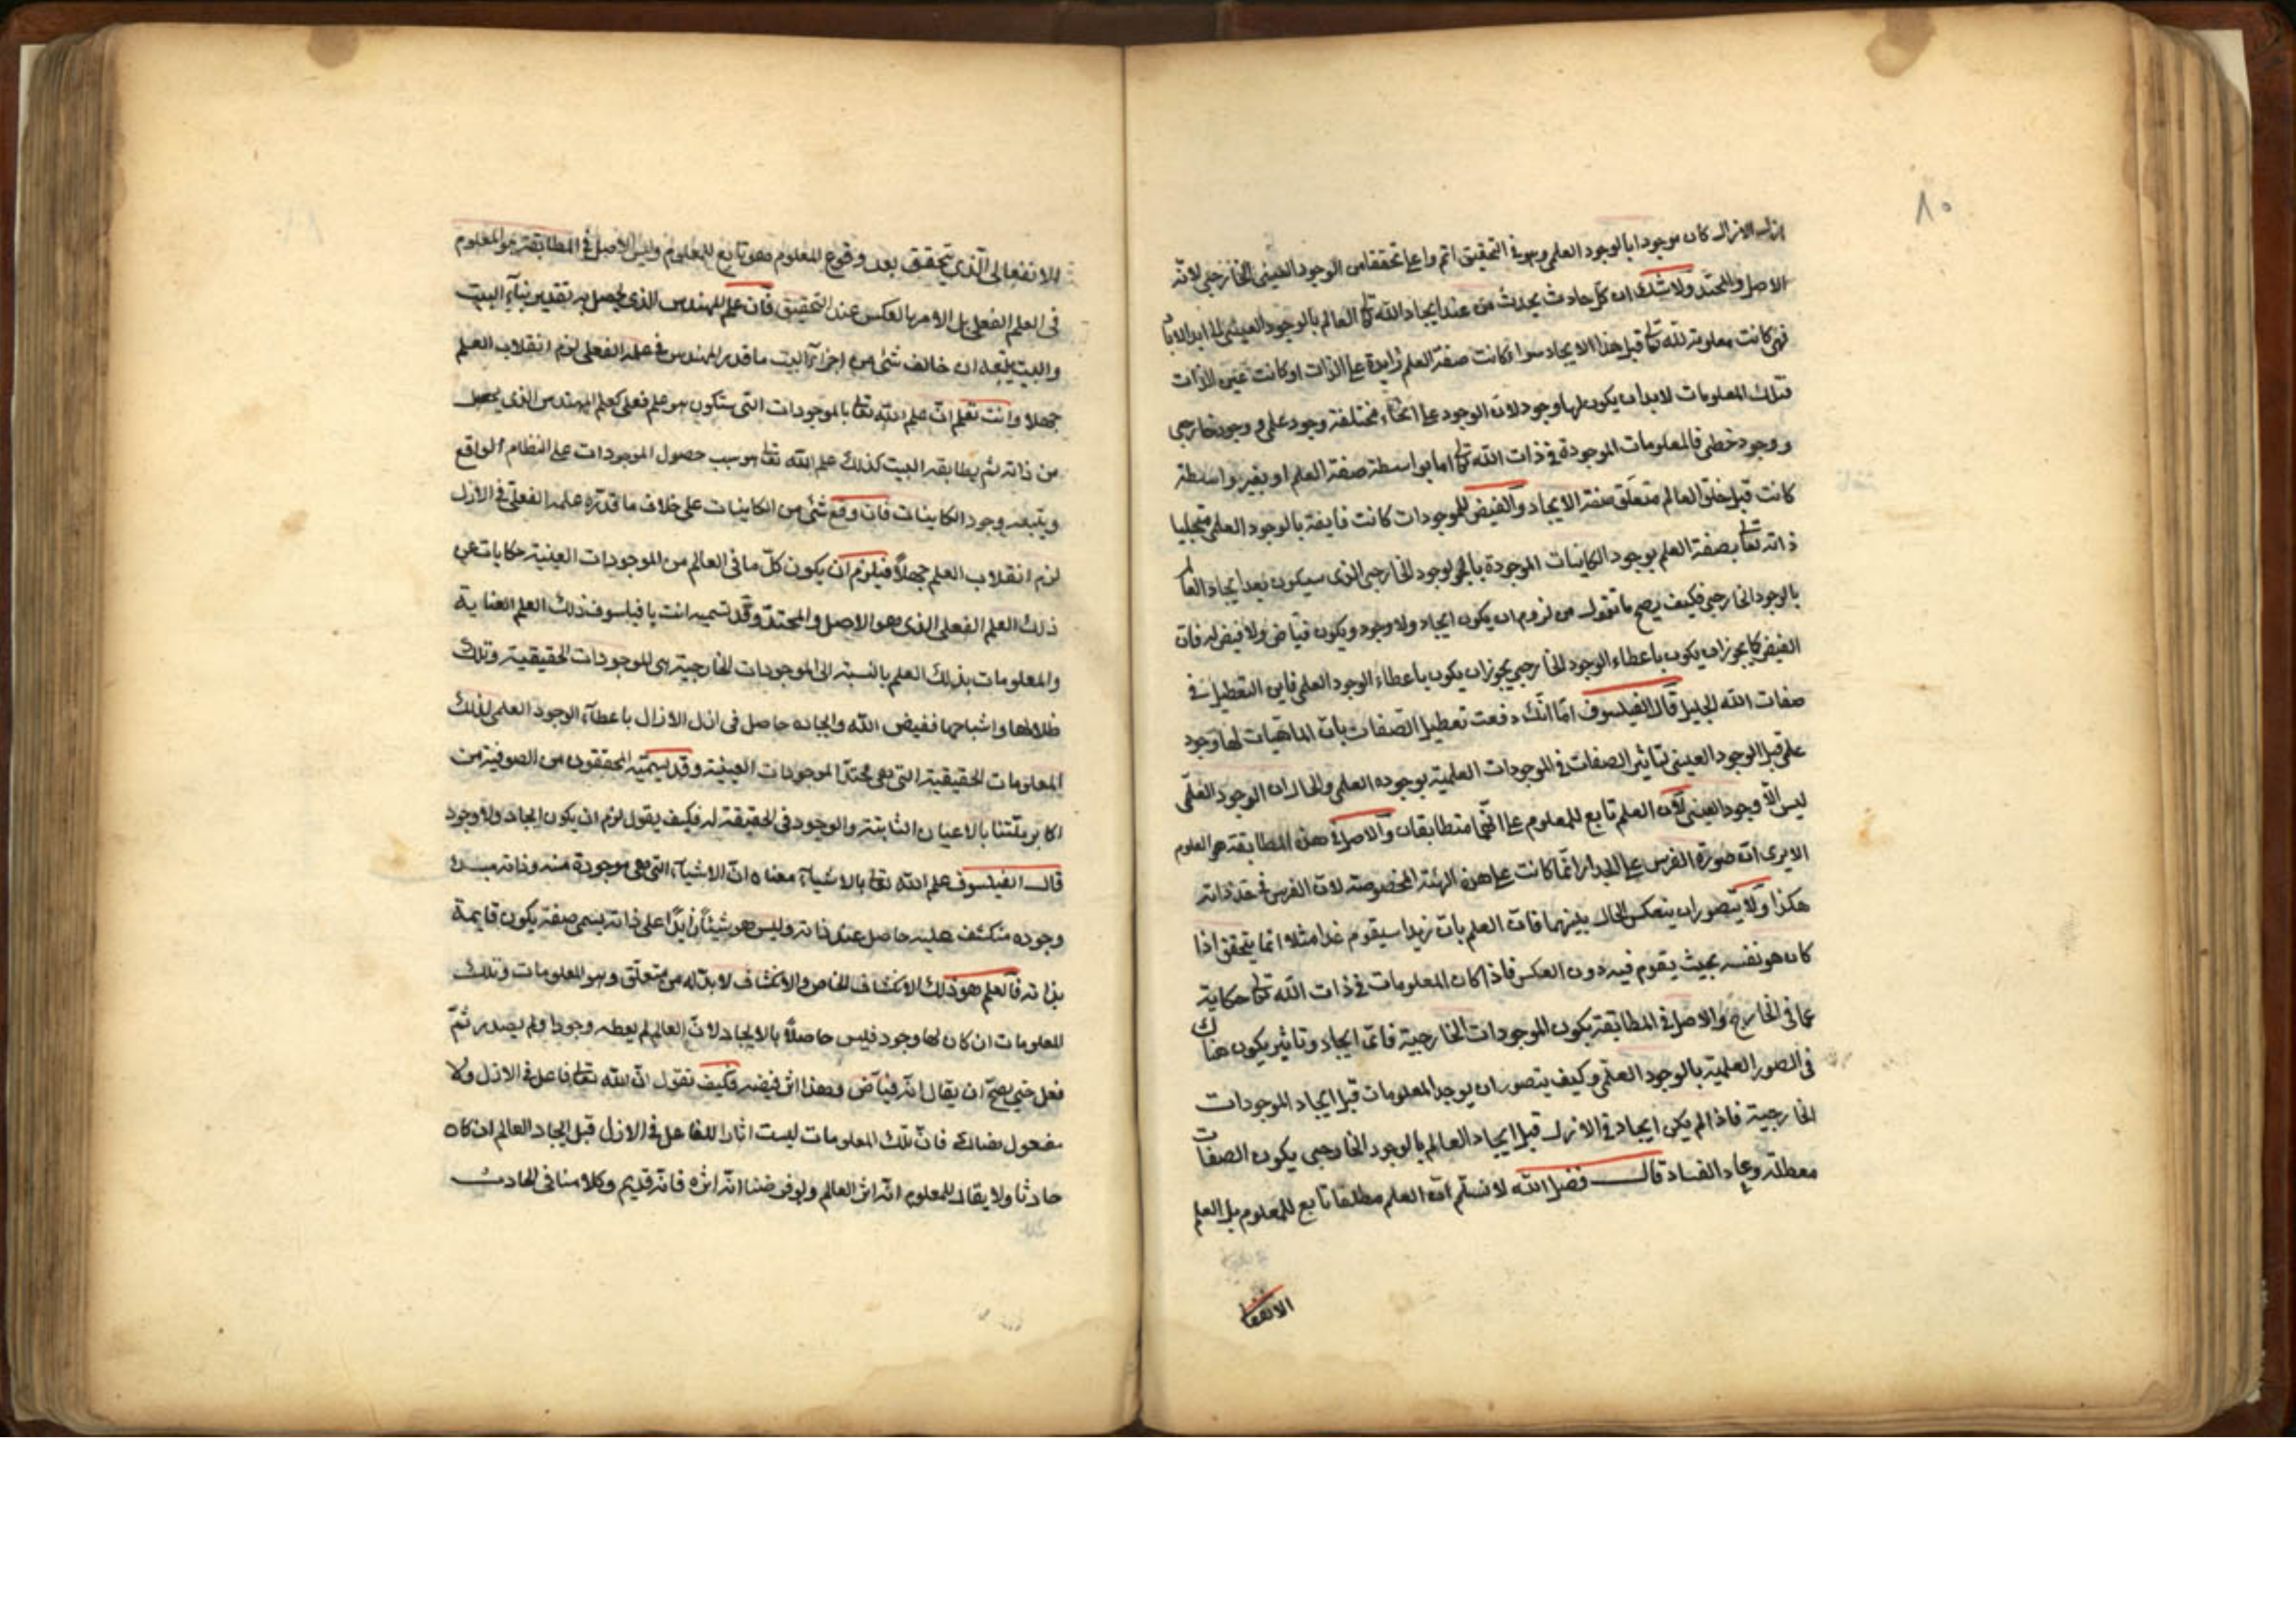 ٨٥
ازل الازال كان موجودا بالوجود العلمي وهو في التحقيق اتم واعلى تحققا من الوجود العيني الخارجي لانه
الاصل والمحتد ولا شك ان كل حادث يحدث من عند ايجاد الله تعالى العالم بالوجود العيني الى ابد الاباد
فهي كانت معلومة لله تعالى قبل هذا الايجاد سواء كانت صفة العلم زايدة على الذات او كانت عين الذات
فتلك المعلومات لابد ان يكون لها وجود لان الوجود على انحاء مختلفة وجود علمي و وجود خارجي
و وجود خطي فالمعلومات الموجودة في ذات الله تعالى اما بواسطة صفة العلم او بغير واسطة
كانت قبل خلق العالم متعلق صفة الايجاد والفيض للموجودات كانت فايضة بالوجود العلمي متجليا
ذاته تعالى بصفة العلم بوجود الكاينات الموجودة بالوجود الخارجي الذي سيكون بعد ايجاد العالم
بالوجود الخارجي فكيف يصح ما تقول من لزوم ان يكون ايجاد ولا وجود ويكون فياض ولا فيض له فان
الفيض كما يجوز ان يكون باعطاء الوجود الخارجي يجوز ان يكون باعطاء الوجود العلمي فاين التعطيل في
صفات الله الجليل قال الفيلسوف اما انك دفعت تعطيل الصفات بان الماهيات لها وجود
علمي قبل الوجود العيني لتاثير الصفات في الموجودات العلمية بوجوده العلمي والحال ان الوجود العلمي
ليس الا وجود العيني لان العلم تابع للمعلوم على انهما متطابقان والاصل في هذه المطابقة هو المعلوم
الا يرى ان صورة الفرس على الجدار انما كانت على هذه الهيئة المخصوصة لان الفرس في حد ذاته
هكذا ولا يتصور ان ينعكس الحال بينهما فان العلم بان زيدا سيقوم غدا مثلا انما يتحقق اذا
كان هو نفسه بحيث يقوم فيه دون العكس فاذا كان المعلومات في ذات الله تعالى حكاية
عما في الخارج والاصل في المطابقة يكون الموجودات الخارجية فاي ايجاد وتاثير يكون هناك
في الصور العلمية بالوجود العلمي وكيف يتصور ان يوجد المعلومات قبل ايجاد الموجودات
الخارجية فاذا لم يكن ايجاد في الازل قبل ايجاد العالم بالوجود الخارجي يكون الصفات
معطلة وعاد الفساد قال فضل الله لا نسلم ان العلم مطلقا تابع للمعلوم بل العلم
الانفعا
الانفعالي الذي يتحقق بعد وقوع المعلوم هو تابع للمعلوم وليس الاصل في المطابقة هو المعلوم
في العلم الفعلي بل الامر بالعكس عند التحقيق فان علم المهندس الذي يحصل به تقدير بناء البيت
والبيت يتبعه ان خالف شئ من اجزاء البيت ما قدر المهندس في علمه الفعلي لزم انقلاب العلم
جهلا وانت تعلم ان علم الله تعالى بالموجودات التي ستكون هو علم فعلي كعلم المهندس الذي يحصل
من ذاته ثم يطابقه البيت كذلك علم الله تعالى هو سبب حصول الموجودات على النظام الواقع
ويتبعه وجود الكاينات فان وقع شئ من الكاينات على خلاف ما قدره علمه الفعلي في الازل
لزم انقلاب العلم جهلا فيلزم ان يكون كل ما في العالم من الموجودات العينية حكايات عن
ذلك العلم الفعلي الذي هو الاصل والمحتد وقد تسميه انت يا فيلسوف ذلك العلم العناية
والمعلومات بذلك العلم بالنسبة الى الموجودات الخارجية هي الموجودات الحقيقية وتلك
ظلالها واشباحها ففيض الله وايجاده حاصل في ازل الازال باعطاء الوجود العلمي لتلك
المعلومات الحقيقية التي هي محتد الموجودات العينية وقد يسميه المحققون من الصوفية من
اكابر ملتنا بالاعيان الثابتة والوجود في الحقيقة له فكيف يقول لزم ان يكون ايجاد ولا وجود
قال الفيلسوف علم الله تعالى بالاشياء معناه ان الاشياء التي هي موجودة منه وذاته مبدء
وجوده منكشف عليه حاصل عند ذاته وليس هو شيئا زايدا على ذاته يسمى صفة يكون قايمة
بذاته فالعلم هو ذلك الانكشاف الخاص والانكشاف لا بد له من متعلق وهو المعلومات وتلك
المعلومات ان كان لها وجود فليس حاصلا بالايجاد لان العالم لم يعطه وجودا ولم يصدر ثم
فعل حتى يصح ان يقال انه فياض وهذا اثر فيضه فكيف تقول ان الله تعالى فاعل في الازل ولا
مفعول هنالك فان تلك المعلومات ليست اثارا للفاعل في الازل قبل ايجاد العالم ان كان
حادثا ولا يقال للمعلوم انه اثر العالم ولو فرضنا انه اثره فانه قديم وكلامنا في الحادث